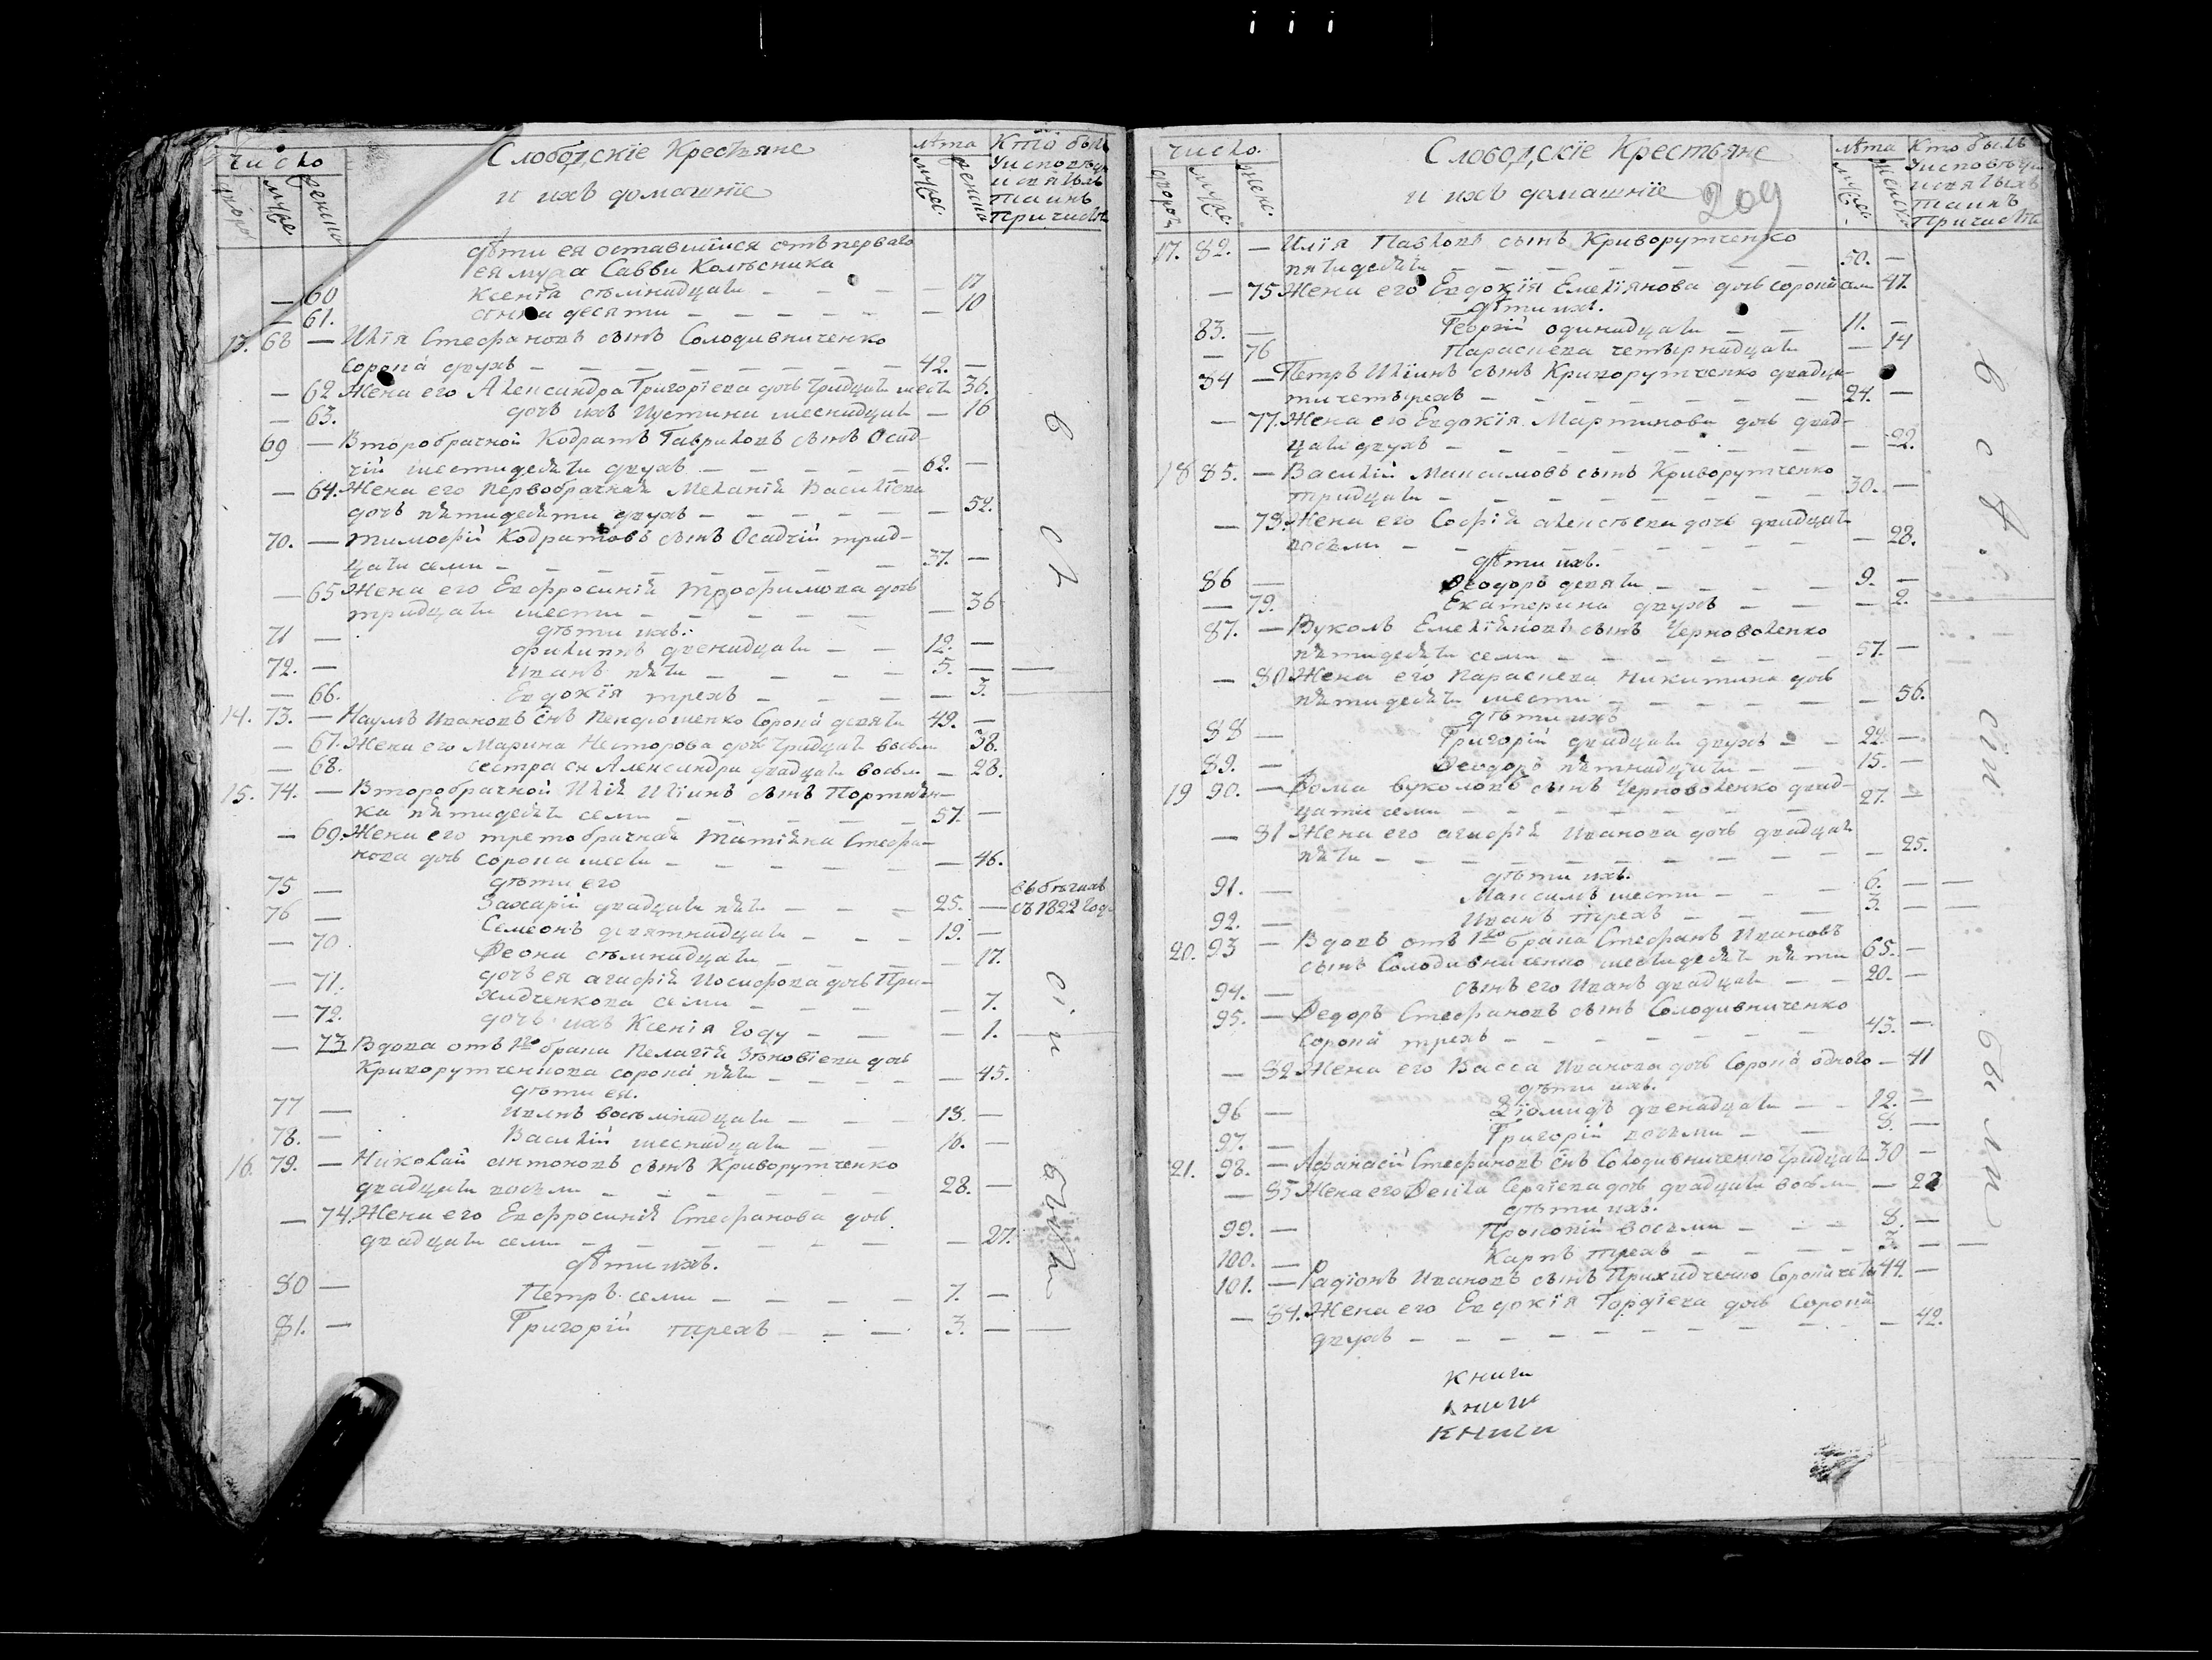 число
двор.
муж.
женска
Слободскіе Крестьяне
и ихъ домашніе
лѣта
муж.
женска
Кто былъ
у исповѣди
и святыхъ
таинъ
причастія
дѣти ея оставшіися отъ перваго
ея мужа Савви Колѣсника
— 60 Ксенія сѣмнадцати — — — — 17
— 61. Анна десяти — — — — — — 10
13. 68 — Илія Стефановъ сынъ Солодивниченко
сорока двухъ — — — — — — — — 42. —
— 62 Жена его Александра Григоріева дочь тридцати шести 36.
— 63. дочь ихъ Иустина шеснадцати — 16
69 — Второбрачной Кодратъ Гавриловъ сынъ Осад-
чій шестидесяти двухъ — — — — — 62. —
— 64. Жена его первобрачная Меланія Василіева
дочь пятидесяти двухъ — — — — — — 52.
70. — Тимофій Кодратовъ сынъ Осадчій трид-
цати семи — — — — — — — 37. —
— 65 Жена его Евфросинія Трофимова дочь
тридцати шести — — — — — — 36
дѣти ихъ:
71 — Филиппъ двенадцати — — 12. —
72. — Иванъ пяти — — — — 5. — —
— 66. Евдокія трехъ — — — — — 3.
14. 73. — Наумъ Ивановъ снъ сорока девяти 49. —
— 67. Жена его Марина Несторова дочь тридцати восьми 38.
— 68. сестра ея Александра двадцати восьми — 28.
15. 74. — Второбрачной Илія Иліинъ сынъ Портнян-
ка пятидесяти семи — — — — — 57. —
— 69. Жена его третобрачная Татіяна Стефа-
нова дочь сорока шести — — — — — — 46.
дѣти его
75 — Захарій двадцати пяти — — — 25. — въ бѣгахъ
съ 1822 года
76 — Семеонъ девятнадцати — — — 19. —
— 70. Феона сѣмнадцати — — — — 17.
— 71. дочь ея Агафія Иосифова дочь При-
ходченкова семи — — — — — 7.
— 72. дочь ихъ Ксенія году — — — 1.
— 73 Вдова отъ 1го брака Пелагія Зѣновіева дочь
Криворутченкова сорока пяти — — — — — 45.
дѣти ея.
77 — Иванъ восемнадцати — — — 18. —
78. — Василій шеснадцати — — 16. —
16. 79. — Николай Антоновъ сынъ Криворутченко
двадцати восьми — — — — — — 28. —
— 74. Жена его Евфросинія Стефанова дочь
двадцати семи — — — — — — — 27.
дѣти ихъ.
80 — Петръ семи — — — — 7. —
81. — Григорій трехъ — — — 3. — —
всѣ
сіи
были
число.
двор.
муж.
женс.
Слободскіе Крестьяне
и ихъ домашніе
209
лѣта
муж.
женск.
Кто былъ
у исповѣди
и святыхъ
таинъ
причастія
17. 82. — Илія Павловъ сынъ Криворутченко
пятидесяти — — — — — — — 50. —
— 75 Жена его Евдокія Емеліянова дочь сорока семи 47.
дѣти ихъ.
83. — Георгій одинадцати — — 11. —
— 76 Параскева четырнадцати — 14
84 — Петръ Иліинъ сынъ Криворутченко двадца-
ти четырехъ — — — — — — — 24. —
— 77. Жена его Евдокія Мартинова дочь двад-
цати двухъ — — — — — — — — 22.
18 85. — Василій Максимовъ сынъ Криворутченко
тридцати — — — — — — — — 30. —
— 78. Жена его Софія Алексѣева дочь двадцати
восьми — — — — — — — — — 28.
дѣти ихъ.
86 — Феодоръ девяти — — — — 9. —
— 79. Екатерина двухъ — — — 2.
87. — Вуколъ Емеліяновъ сынъ Черноволенко
пятидесяти семи — — — — — — 57. —
— 80 Жена его Параскева Никитина дочь
пятидесяти шести — — — — — — 56.
дѣти ихъ
88 — Григорій двадцати двухъ — — 22. —
89. — Феодоръ пятнадцати — — 15. —
19 90. — Фома Вуколовъ сынъ Черноволенко двад-
цати семи — — — — — — 27. —
— 81 Жена его Агафія Иванова дочь двадцати
пяти — — — — — — — — — — 25.
дѣти ихъ.
91. — Максимъ шести — — — 6. — —
92. — Иванъ трехъ — — — — 3. — —
20. 93 — Вдовъ отъ 1го брака Стефанъ Ивановъ
сынъ Солодивниченко шестидесяти пяти 65. —
94. — сынъ его Иванъ двадцати — — 20. —
95. — Федоръ Стефановъ сынъ Солодивниченко
сорока трехъ — — — — — — — 43. —
— 82 Жена его Васса Иванова дочь сорока одного — 41
дѣти ихъ.
96 — Діомидъ двенадцати — — 12. —
97. — Григорій восьми — — — 8. —
21. 98. — Афанасій Стефановъ снъ Солодивниченко тридцати 30 —
— 83 Жена его Сергіева дочь двадцати восьми — 28
дѣти ихъ.
99. — Прокопій восьми — — — 8. —
100. — Карпъ трехъ — — — — 3. — —
101. — Радіонъ Ивановъ сынъ Приходченко 44. —
— 84. Жена его Евдокія Гордіева дочь сорока
двухъ — — — — — — — — — — 42.
всѣ
сіи
были
книги
книги
книги